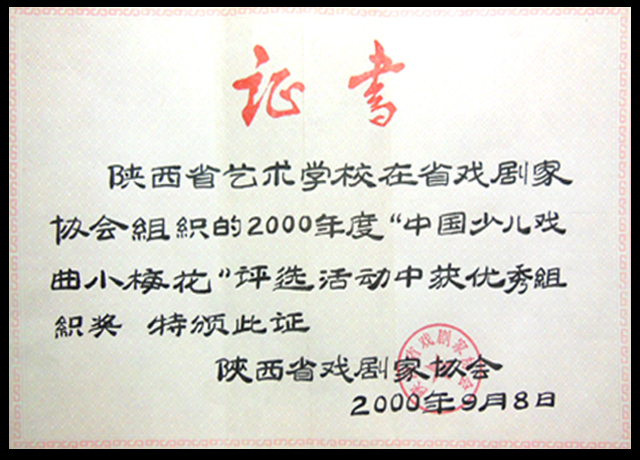 证书
陕西省艺术学校在省戏剧家
协会组织的2000年度“中国少儿戏
曲小梅花”评选活动中获优秀组
织奖 特颁此证
陕西省戏剧家协会
2000年9月8日